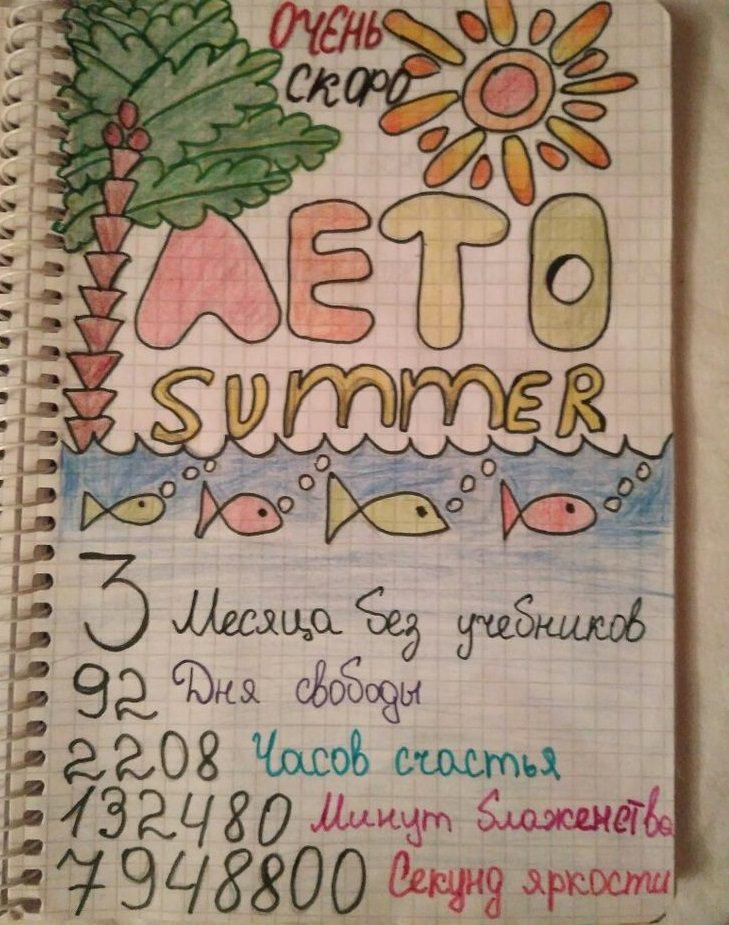 ОЧЕНЬ
СКОРО
ЛЕТО
SUMMER
3 Месяца без учебников
92 Дня свободы
2208 Часов счастья
132480 Минут блаженства
7948800 Секунд яркости